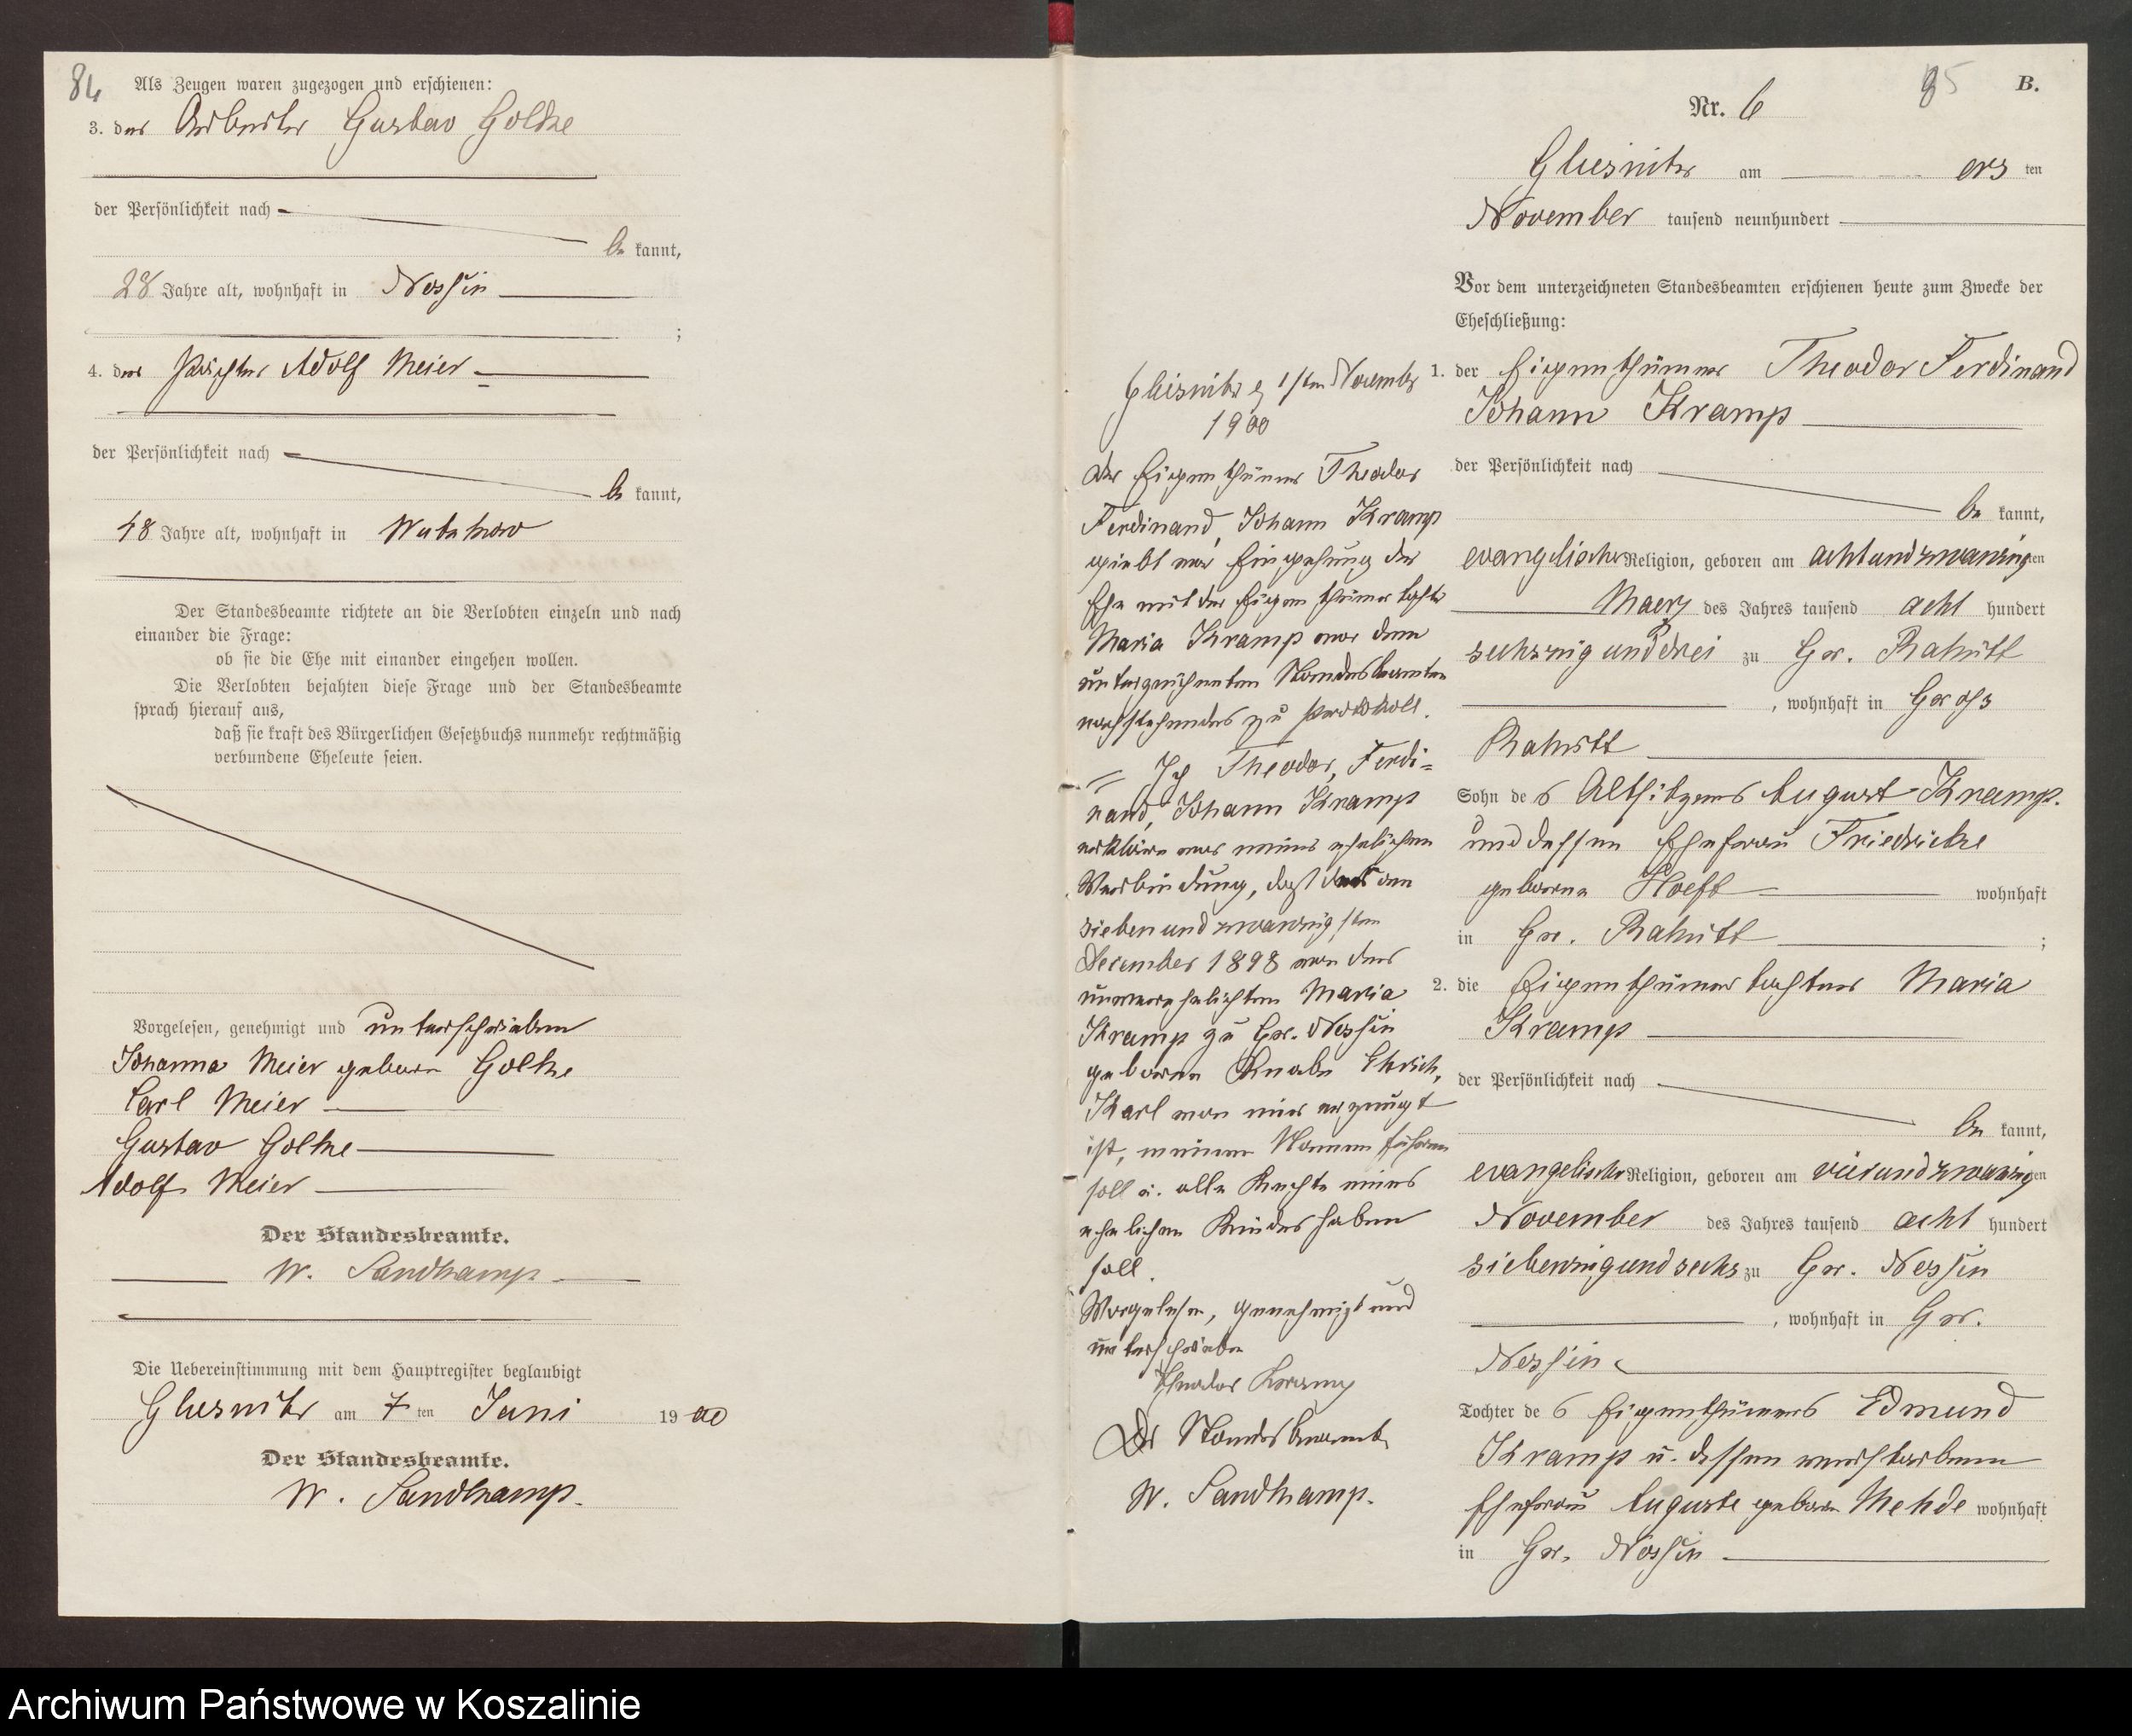 84
Als Zeugen waren zugezogen und erschienen:
3. der Arbeiter Gustav Golcke
der Persönlichkeit nach
be kannt,
28 Jahre alt, wohnhaft in Nossin
;
4. der Pächter Adolf Meier
der Persönlichkeit nach
be kannt,
48 Jahre alt, wohnhaft in Wutzkow
Der Standesbeamte richtete an die Verlobten einzeln und nach
einander die Frage:
ob sie die Ehe mit einander eingehen wollen.
Die Verlobten bejahten diese Frage und der Standesbeamte
sprach hierauf aus,
daß sie kraft des Bürgerlichen Gesetzbuchs nunmehr rechtmäßig
verbundene Eheleute seien.
Vorgelesen, genehmigt und unterschrieben
Johanna Meier geborne
Carl Meier
Gustav
Adolf Meier
Der Standesbeamte.
W. Sandkamp
Die Uebereinstimmung mit dem Hauptregister beglaubigt
Gliesnitz am 7 ten Juni 19 00
Der Standesbeamte.
W. Sandkamp.
85
B.
Nr. 6
Gliesnitz am ers ten
November tausend neunhundert
Vor dem unterzeichneten Standesbeamten erschienen heute zum Zwecke der
Eheschließung:
1. der Eigenthümer Theodor Ferdinand
Johann Kramp
der Persönlichkeit nach
be kannt,
evangelischer Religion, geboren am achtundzwanzig ten
Maerz des Jahres tausend acht hundert
sechszig und drei zu Gr. Rakitt
, wohnhaft in Gross
Rakitt
Sohn des Altsitzers August Kramp.
und dessen Ehefrau Friedricke
geborne Hoeft wohnhaft
in Gr. Rakitt ;
2. die Eigenthümertochter Maria
Kramp
der Persönlichkeit nach
be kannt,
evangelischer Religion, geboren am vierundzwanzig ten
November des Jahres tausend acht hundert
siebenzig und sechs zu Gr. Nossin
, wohnhaft in Gr.
Nossin
Tochter des Eigenthümers Edmund
Kramp u. dessen verstorbenen
Ehefrau Auguste geborne wohnhaft
in Gr. Nossin
Gliesnitz d 1sten November
1900
Der Eigenthümer Theodor
Ferdinand, Johann Kramp
giebt vor Eingehung der
Ehe mit der Eigenthümertochter
Maria Kramp vor dem
unterzeichneten Standesbeamten
nachstehendes zu Protokoll.
= Ich Theodor, Ferdi=
nand, Johann Kramp
erkläre vor meiner ehelichen
Verbindung, dass der am
siebenundzwanzigsten
December 1898 von der
unverehelichten Maria
Kramp zu Gr. Nossin
geborne Knabe Ehrich,
Karl von mir erzeugt
ist, meinen Namen führen
soll u. alle Rechte eines
ehelichen Kindes haben
soll.
Vorgelesen, genehmigt und
unterschrieben
Theodor Kramp
Der Standesbeamte
W. Sandkamp.
Archiwum Państwowe w Koszalinie